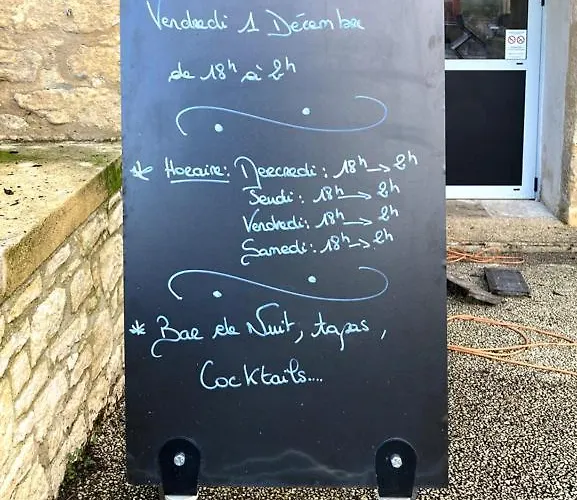 Vendredi 1 Décembre
de 18h à 2h
* Horaire: Mercredi: 18h → 2h
Jeudi: 18h → 2h
Vendredi: 18h → 2h
Samedi: 18h → 2h
* Bar de Nuit, tapas,
Cocktails....